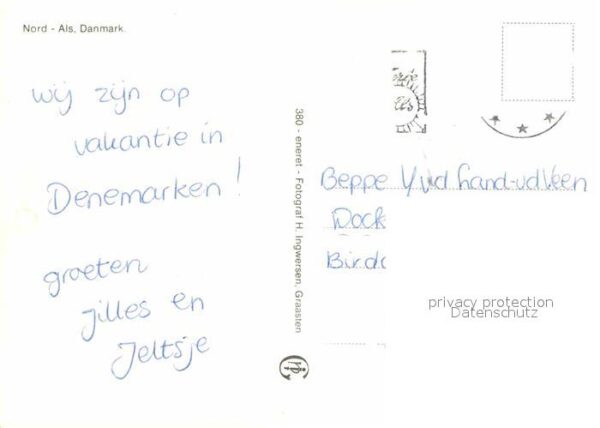 Nord - Als, Danmark.
wij zijn op
vakantie in
Denemarken!
groeten
jilles en
Jeltsje
380 - eneret - Fotograf H. Ingwersen, Graasten
Beppe Y vd Land-vdVeen
Dock
Bird
privacy protection
Datenschutz